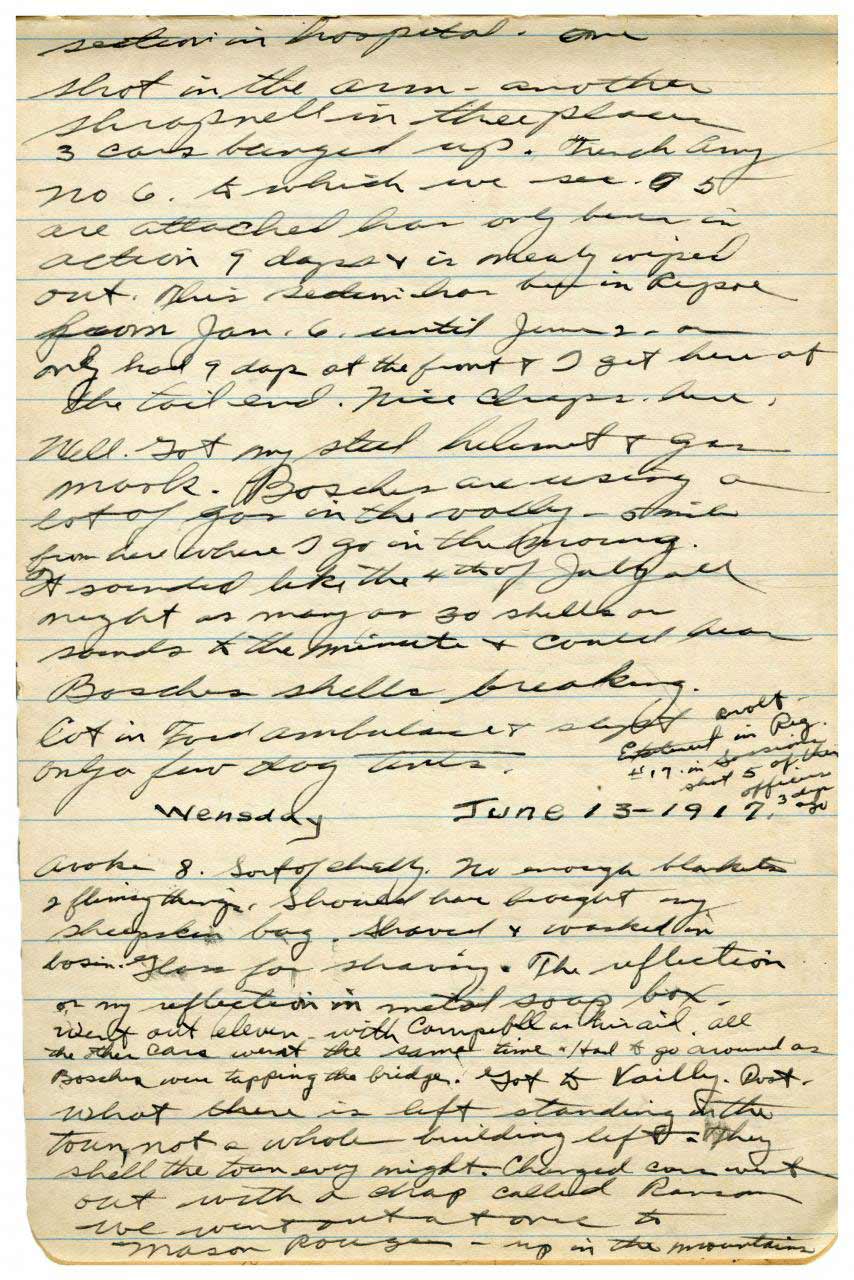 section in hospital. one
shot in the arm - another
shrapnell in three places
3 cars banged up. French Army
No 6. to which we sec. 9 5
are attached has only been in
action 9 days & is nearly wiped
out. This section has been in Repose
from Jan. 6. until June 2 -
only had 9 days at the front & I get here at
the tail end. Nice chaps here.
Well. Got my steel helmet & gas
mask. Bosches are using a
lot of gas in the vally - 5 mile
from here where I go in the morning.
It sounded like the 4th of July all
night as many as 30 shells or
sounds to the minute & could hear
Bosches shells breaking.
Cot in Ford ambulance & slept
only a few dog tents.
revolt -
in Reg.
#17. in
shot 5 of their
officers
3 days
ago
Wensday June 13 - 1917.
Awoke 8. Sort of chilly. No enough blankets
2 flimsy things. Should have brought my
sheepskin bag. Shaved & washed in
basin. Glass for shaving. The reflection
or my reflection in metal soap box -
Went out eleven - with Campbell as his aid. all
the other cars went the same time. Had to go around as
Bosches were tapping the bridge. Got to Vailly. Post.
What there is left standing in the
town, not a whole building left - They
shell the town evry night. Changed cars went
out with a chap called Ransom
We went out at once to
Mason Rouge - up in the mountains